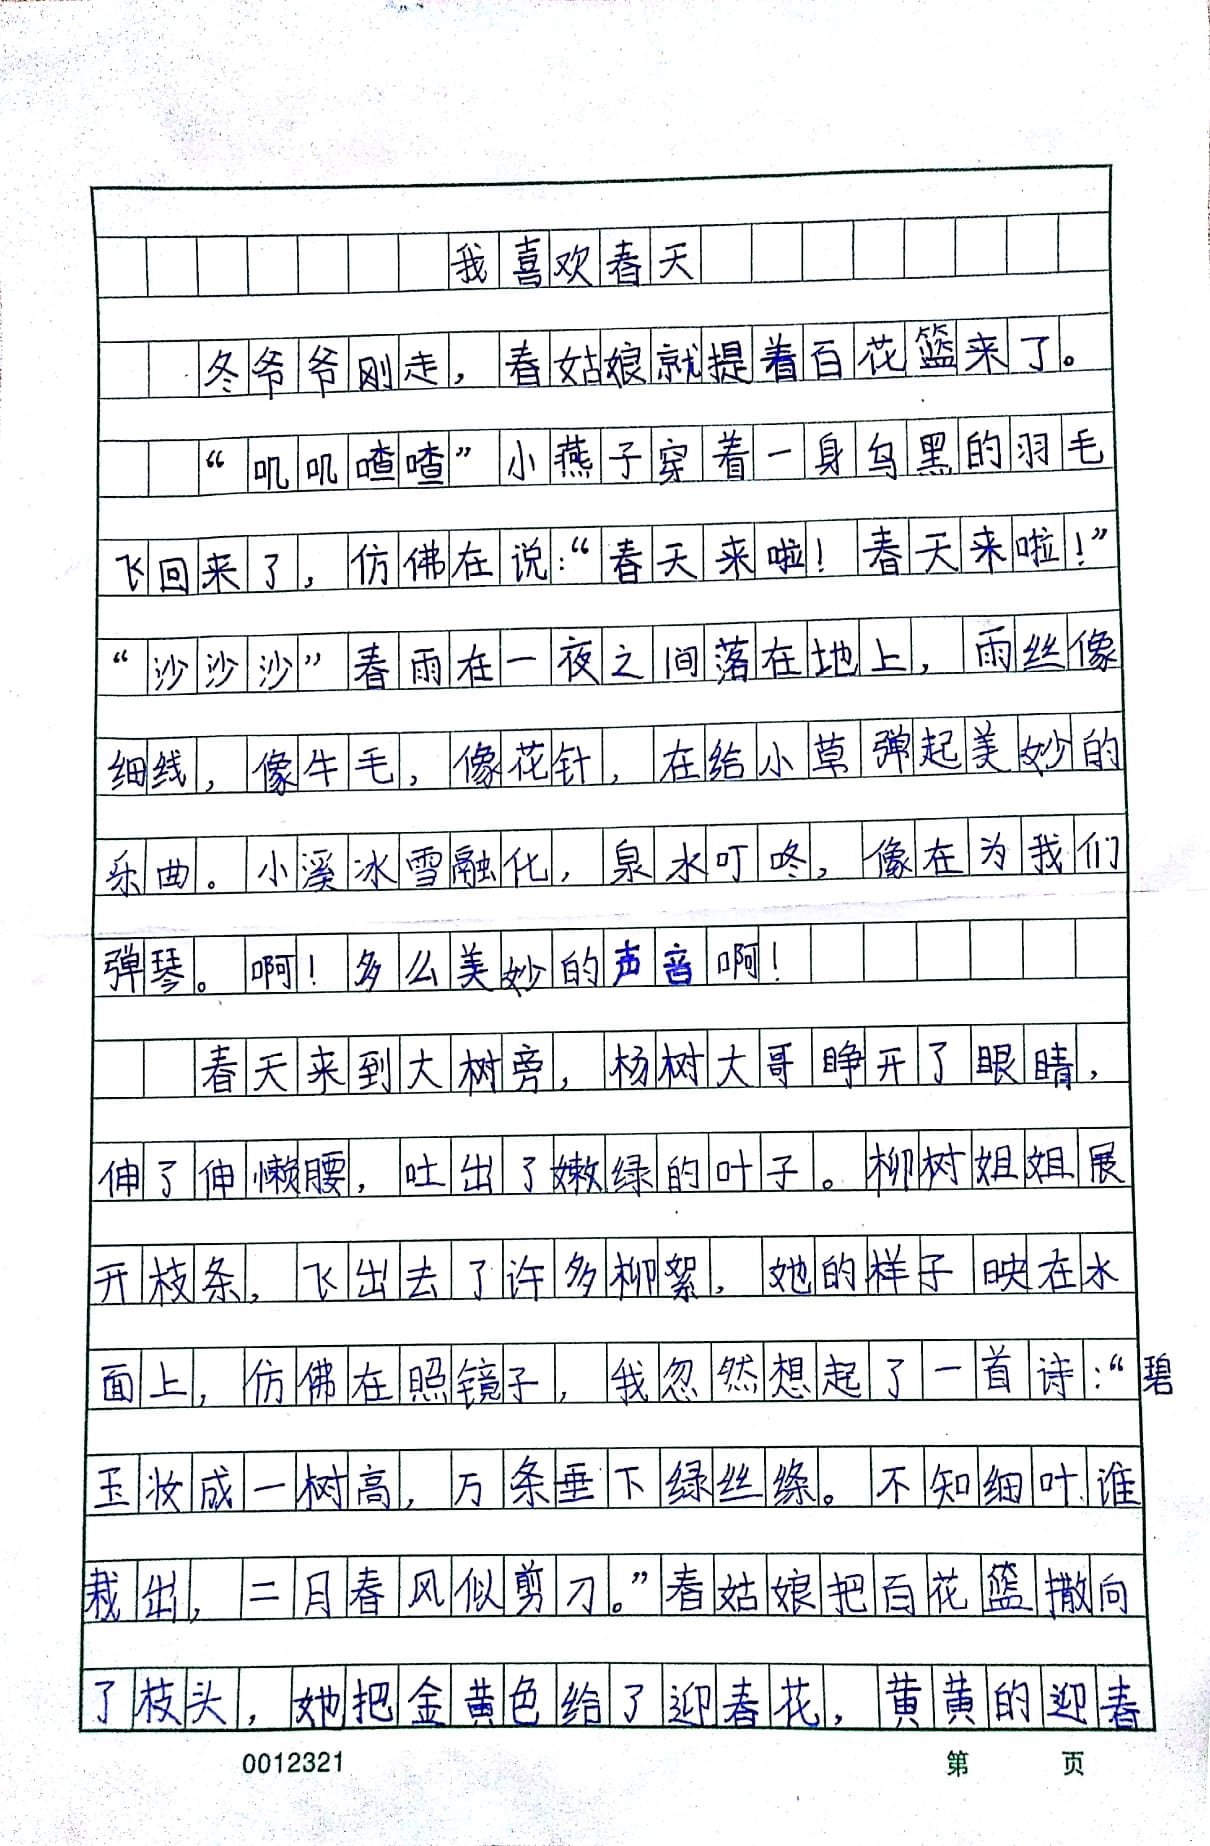 我喜欢春天
冬爷爷刚走，春姑娘就提着百花篮来了。
“叽叽喳喳”小燕子穿着一身乌黑的羽毛
飞回来了，仿佛在说：“春天来啦！春天来啦！”
“沙沙沙”春雨在一夜之间落在地上，雨丝像
细线，像牛毛，像花针，在给小草弹起美妙的
乐曲。小溪冰雪融化，泉水叮咚，像在为我们
弹琴。啊！多么美妙的声音啊！
春天来到大树旁，杨树大哥睁开了眼睛，
伸了伸懒腰，吐出了嫩绿的叶子。柳树姐姐展
开枝条，飞出去了许多柳絮，她的样子映在水
面上，仿佛在照镜子，我忽然想起了一首诗：“碧
玉妆成一树高，万条垂下绿丝绦。不知细叶谁
裁出，二月春风似剪刀。”春姑娘把百花篮撒向
了枝头，她把金黄色给了迎春花，黄黄的迎春
0012321
第 页